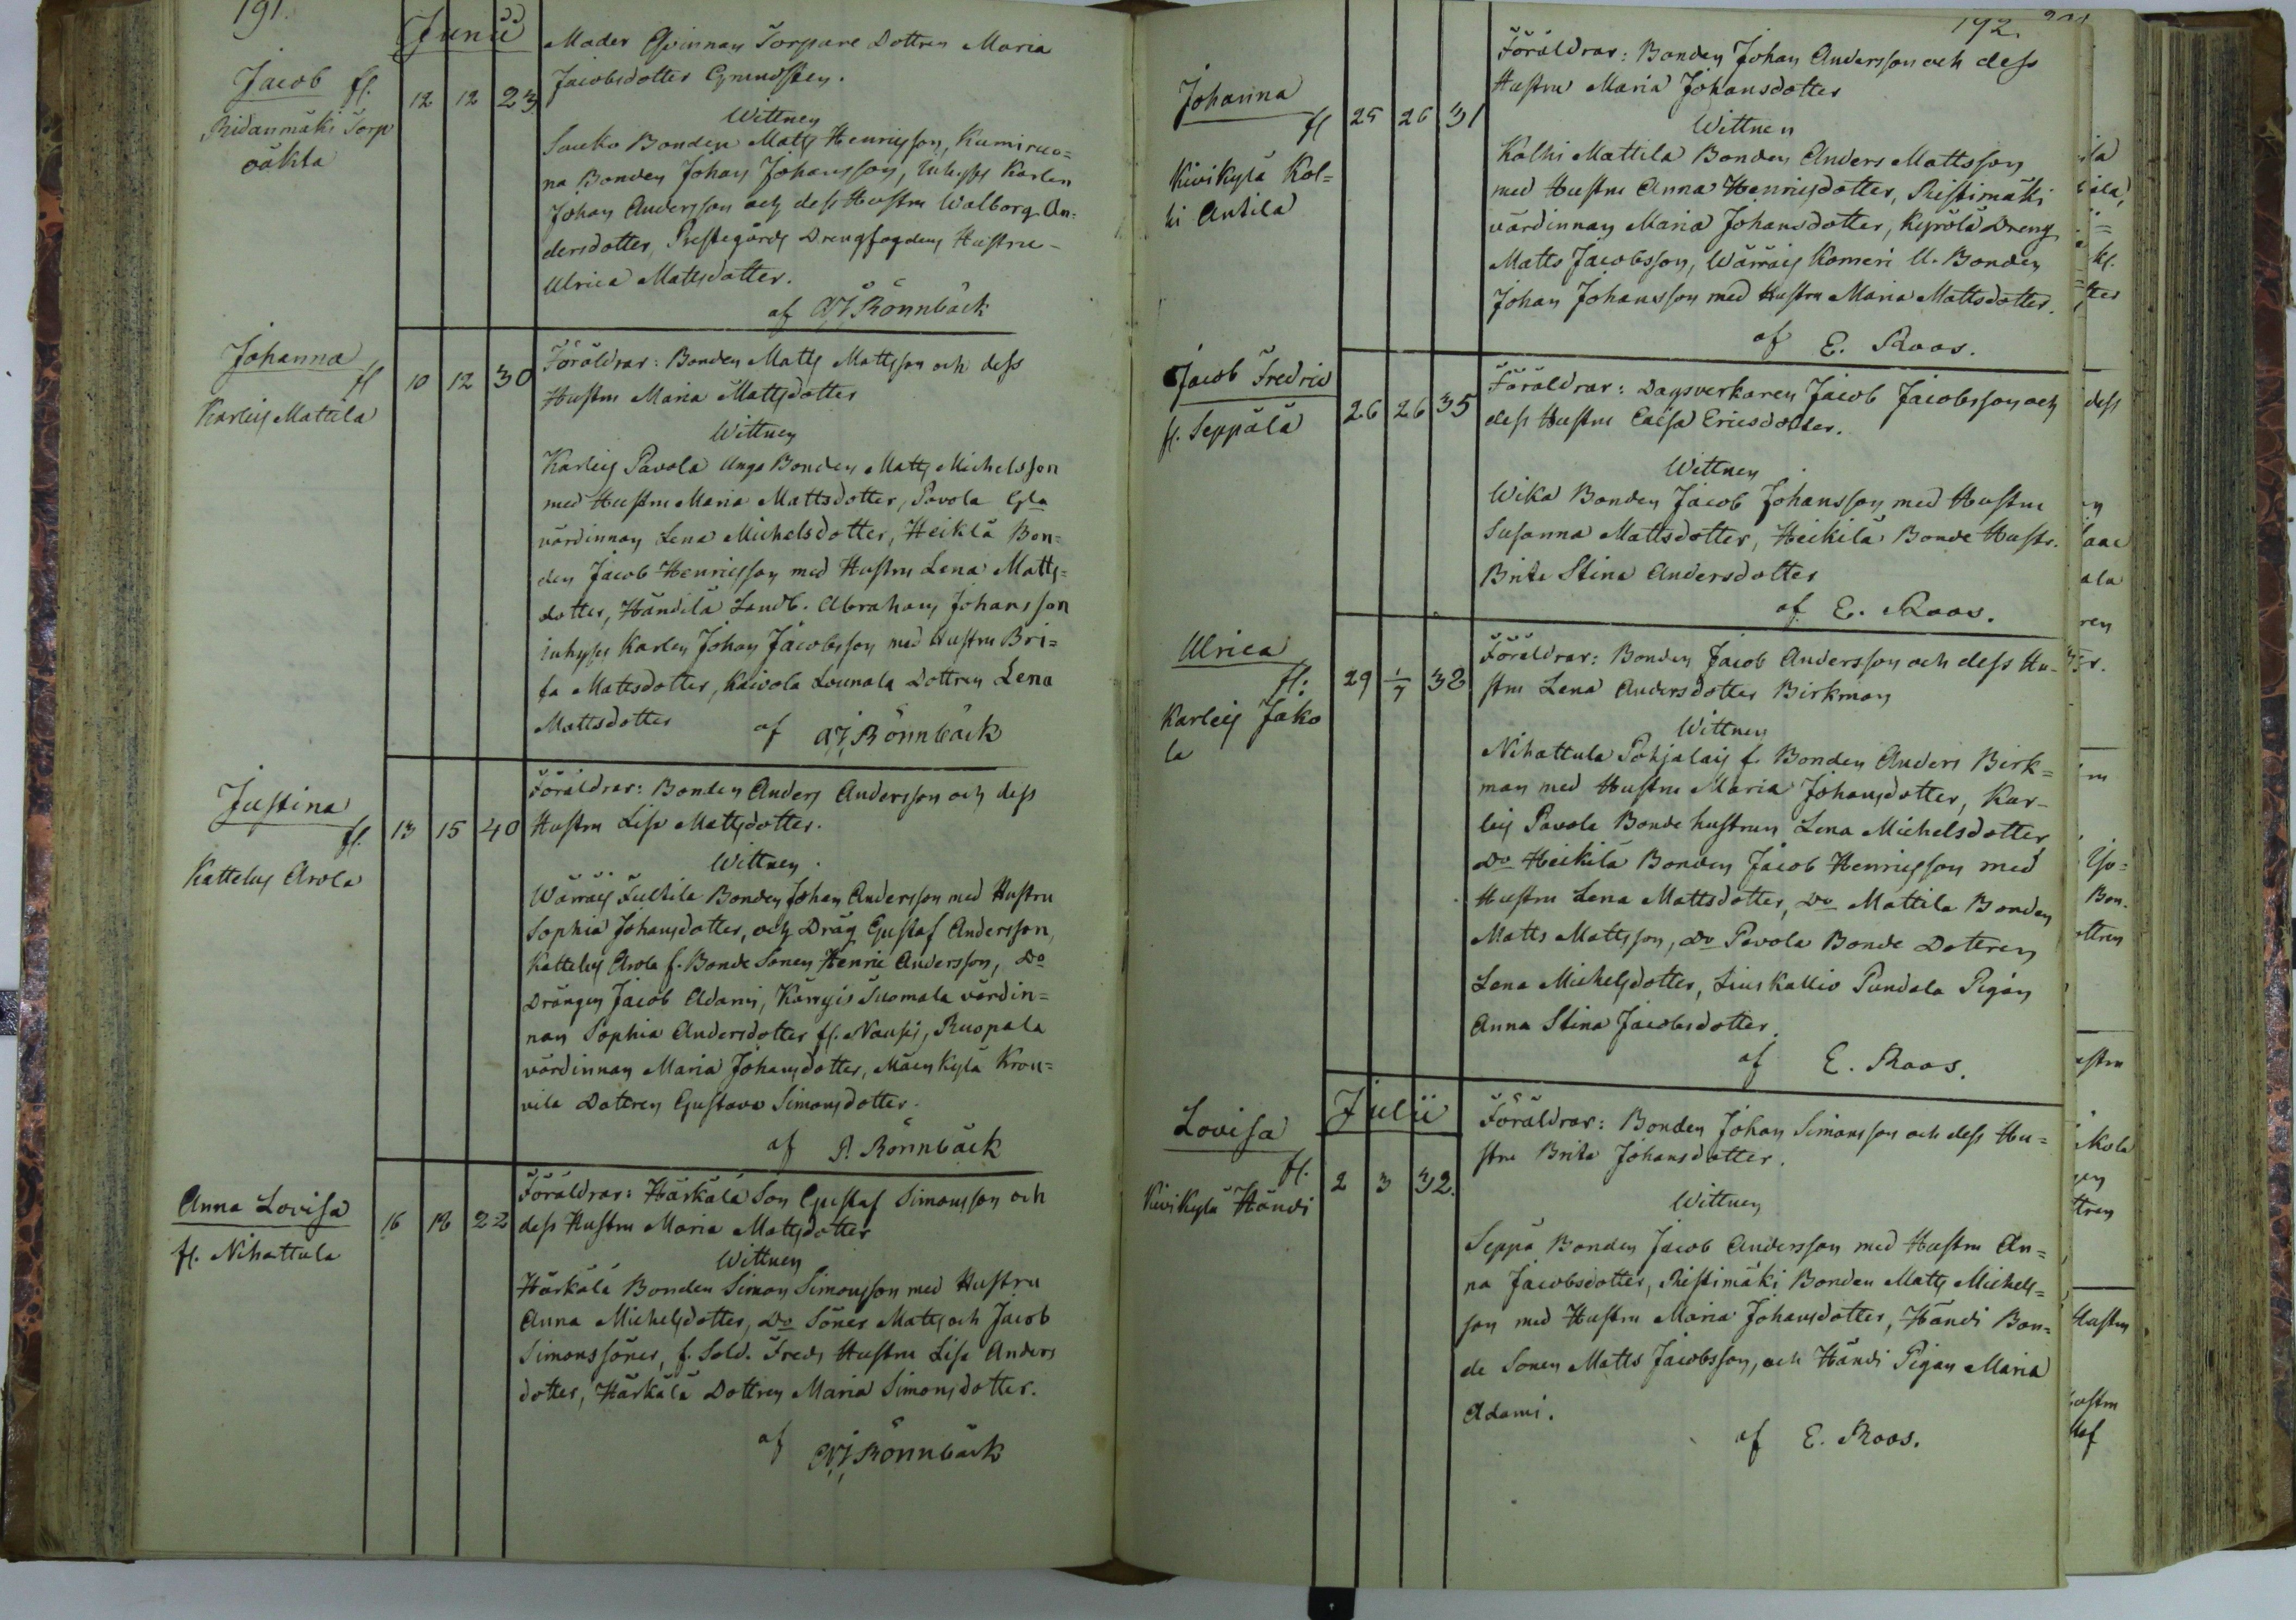 191.
Junii
Jacob fl.
Ridanmäki Torp
oäkta
12 12 23
Moder Qvinnan Torpare Dottren Maria
Jacobsdotter Grundsten.
Wittnen
Souko Bonden Matts Henricsson, Kumiruo=
na Bonden Johan Johansson, Inhyses Karlen
Johan Andersson och dess Hustru Walborg An=
dersdotter, Prestegårds Drengfogdens Hustru
Ulrica Mattsdotter.
af AJ Rönnbäck
Johanna
fl
Karleis Mattila
10 12 30
Föräldrar: Bonden Matts Mattsson och dess
Hustru Maria Mattsdotter
Wittnen
Karleis Pavola Unga Bonden Matts Michelsson
med Hustru Maria Mattsdotter, Pavola Gla
värdinnan Lena Michelsdotter, Heikilä Bon=
den Jacob Henricsson med Hustru Lena Matts=
dotter, Händilä Landb. Abraham Johansson
inhyses Karlen Johan Jacobsson med Hustru Bri=
ta Mattsdotter, Kaivola Lounala Dottren Lena
Mattsdotter
af AJ Rönnbäck
Justina
fl.
Kattelus Arola
13 15 40
Föräldrar: Bonden Anders Andersson och dess
Hustru Lisa Mattsdotter.
Wittnen.
Wärräis Tulkila Bonden Johan Andersson med Hustru
Sophia Johansdotter, och Dräg Gustaf Andersson,
Kattelus Arola f. Bonde Sonen Henric Andersson, Do
Drängen Jacob Adami, Kärryis Tuomala värdin=
nan Sophia Andersdotter fl. Nausis, Ruopala
värdinnan Maria Johansdotter, Mäenkylä Krou=
vila Dottren Gustava Simonsdotter.
af P. Rönnbäck
Anna Lovisa
fl. Nihattula
16 18 22
Föräldrar: Härkälä Son Gustaf Simonsson och
dess Hustru Maria Mattsdotter
Wittnen
Härkälä Bonden Simon Simonsson med Hustru
Anna Michelsdotter, Do Söner Matts och Jacob
Simonssöner, f. Sold. Freds Hustru Lisa Anders
dotter, Härkälä Dottren Maria Simonsdotter.
af AJ Rönnbäck
192.
Johanna
fl
Kivikylä Kol=
ki Antila
25 26 31
Föräldrar: Bonden Johan Andersson och dess
Hustru Maria Johansdotter
Wittnen
Kolki Mattila Bonden Anders Mattsson
med Hustru Anna Henricsdotter, Ristimäki
värdinnan Maria Johansdotter, Kyrölä Dreng
Matts Jacobsson, Wärräis Komeri U. Bonden
Johan Johansson med Hustru Maria Mattsdotter.
af E. Roos.
Jacob Fredric
fl. Seppälä
26 26 35
Föräldrar: Dagsverkaren Jacob Jacobsson och
dess Hustru Caisa Ericsdotter.
Wittnen
Wika Bonden Jacob Johansson med Hustru
Susanna Mattsdotter, Heikilä Bonde Hustr.
Brita Stina Andersdotter
af E. Roos.
Ulrica
fl.
Karleis Jako
la
29 1/7 32
Föräldrar: Bonden Jacob Andersson och dess Hu-
stru Lena Andersdotter Birkman
Wittnen
Nihattula Pohjalais f. Bonden Anders Birk=
man med Hustru Maria Johansdotter, Kar-
leis Pavola Bonde hustrun Lena Michelsdotter
Do Heikilä Bonden Jacob Henricsson med
Hustru Lena Mattsdotter, Do Mattila Bonden
Matts Mattsson, Do Pavola Bonde Dottren
Lena Michelsdotter, Liuskallio Pundala Pigan
Anna Stina Jacobsdotter.
af E. Roos.
Julii
Lovisa
fl.
Kivikylä Händi
2 3 32.
Föräldrar: Bonden Johan Simonsson och dess Hu=
stru Brita Johansdotter.
Wittnen
Seppä Bonden Jacob Andersson med Hustru An=
na Jacobsdotter, Ristimäki Bonden Matts Michels=
son med Hustru Maria Johansdotter, Händi Bon=
de Sonen Matts Jacobsson, och Händi Pigan Maria
Adami.
af E. Roos.